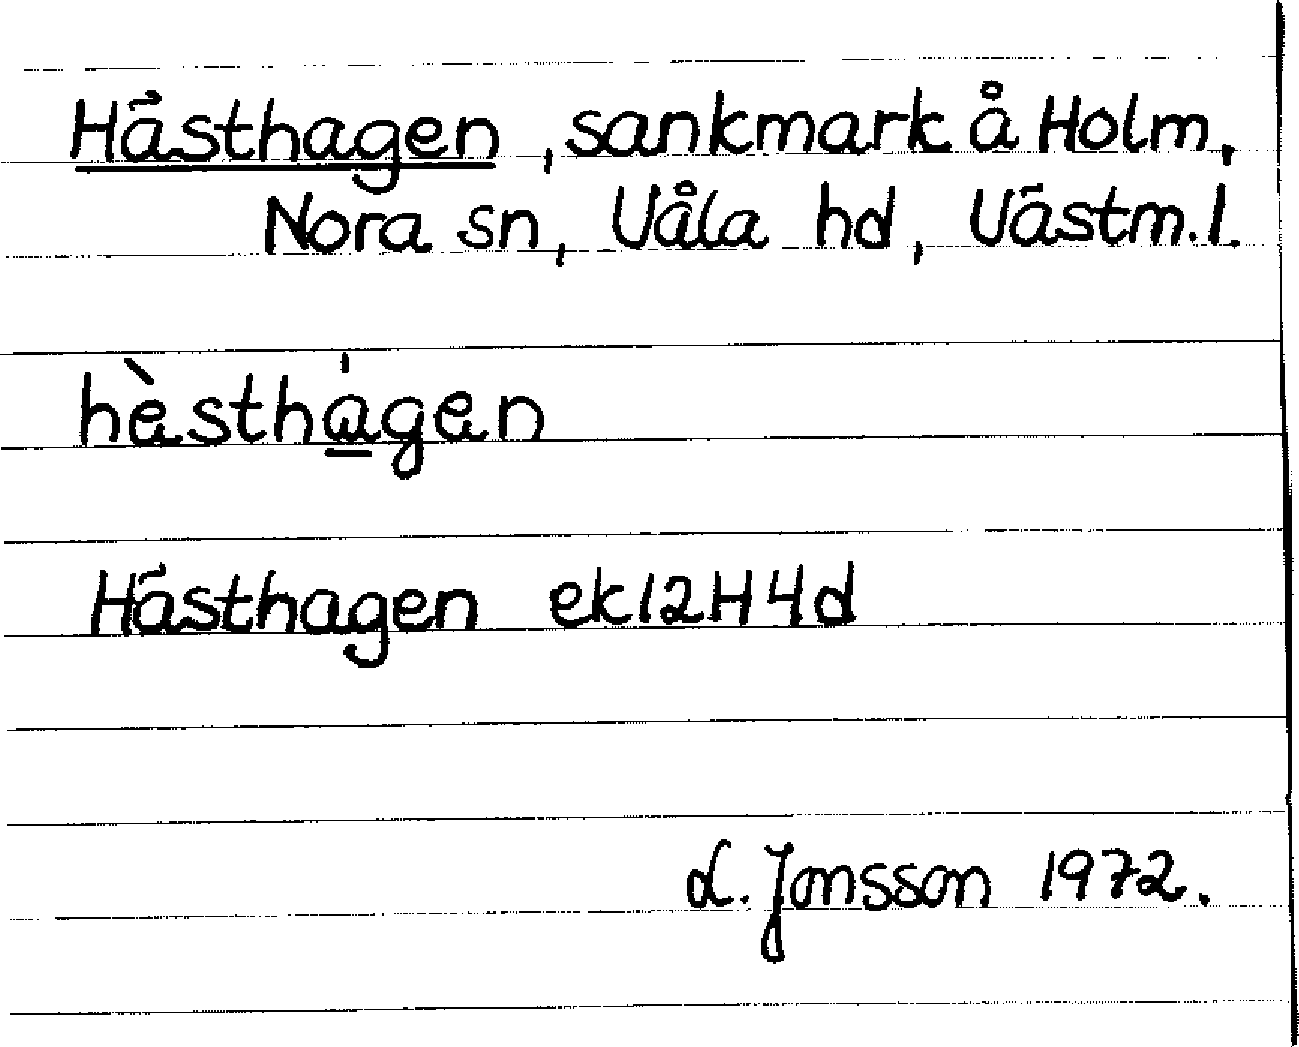 Hästhagen, sankmark å Holm,
Nora sn, Våla hd, Västm.l.
hèsthágen
Hästhagen ek12H4d
L. Jonsson 1972.